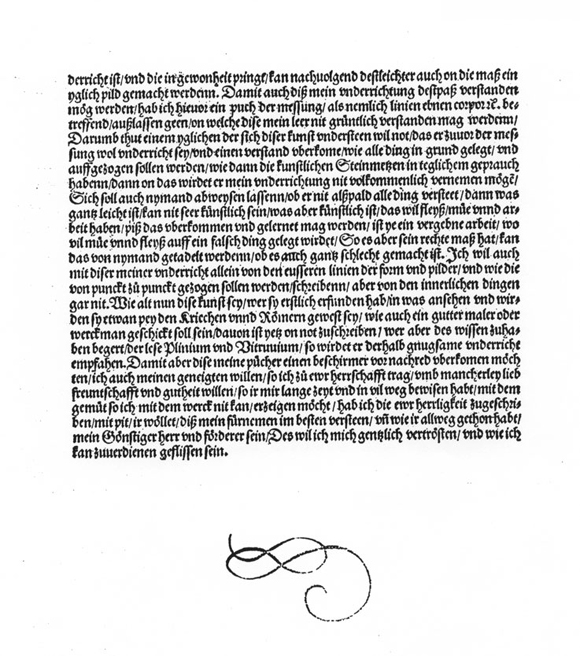 derricht ist/ vnd die in gewonheit pringt/ kan nachuolgend destleichter auch on die maß ein
yglich pild gemacht werdenn. Damit auch diß mein vnderrichtung destpaß verstanden
mög werden/ hab ich hieuor ein puch der messung/ als nemlich linien ebnen corporꝛē. be⸗
treffend/ außlassen geen/ on welche dise mein leer nit grüntlich verstanden mag werdenn/
Darumb thut einem yglichen der sich diser kunst vndersteen wil not/ das er zuuor der mes⸗
sung wol vnderricht sey/ vnd einen verstand vberkome/ wie alle ding in grund gelegt/ vnd
auffgezogen sollen werden/ wie dann die kunstlichen Steinmetzen in teglichem geprauch
habenn/ dann on das wirdet er mein vnderrichtung nit volkommenlich vernemen mögē/
Sich soll auch nymand abweysen lassenn/ ob er nit alßpald alle ding versteet/ dann was
gantz leicht ist/ kan nit seer künstlich sein/ was aber künstlich ist/ das wil fleyß/ müe vnnd ar⸗
beit haben/ piß das vberkommen vnd gelernet mag werden/ ist ye ein vergebne arbeit/ wo
vil müe vnnd fleyß auff ein falsch ding gelegt wirdet/ So es aber sein rechte maß hat/ kan
das von nymand getadelt werdenn/ ob es auch gantz schlecht gemacht ist. Ich wil auch
mit diser meiner vnderricht allein von den eusseren linien der form vnd pilder/ vnd wie die
von punckt zů punckt gezogen sollen werden/ schreibenn/ aber von den innerlichen dingen
gar nit. Wie alt nun dise kunst sey/ wer sy erstlich erfunden hab/ in was ansehen vnd wir⸗
den sy etwan pey den Kriechen vnnd Römern gewest sey/ wie auch ein gutter maler oder
werckman geschickt soll sein/ dauon ist yetz on not zuschreiben/ wer aber des wissen zuha⸗
ben begert/ der lese Plinium vnd Vitruuium/ so wirdet er derhalb gnugsame vnderricht
empfahen. Damit aber dise meine pücher einen beschirmer vor nachred vberkomen möch
ten/ ich auch meinen geneigten willen/ so ich zů ewr herrschafft trag/ vmb mancherley lieb
freuntschafft vnd gutheit willen/ so ir mir lange zeyt vnd in vil weg bewisen habt/ mit dem
gemüt so ich mit dem werck nit kan/ erzeigen möcht/ hab ich die ewr herrligkeit zugeschri⸗
ben/ mit pit/ ir wöllet/ diß mein fürnemen im besten versteen/ vn̄ wie ir allweg gethon habt/
mein Günstiger herr vnd förderer sein/ Des wil ich mich gentzlich vertrösten/ vnd wie ich
kan zuuerdienen geflissen sein.